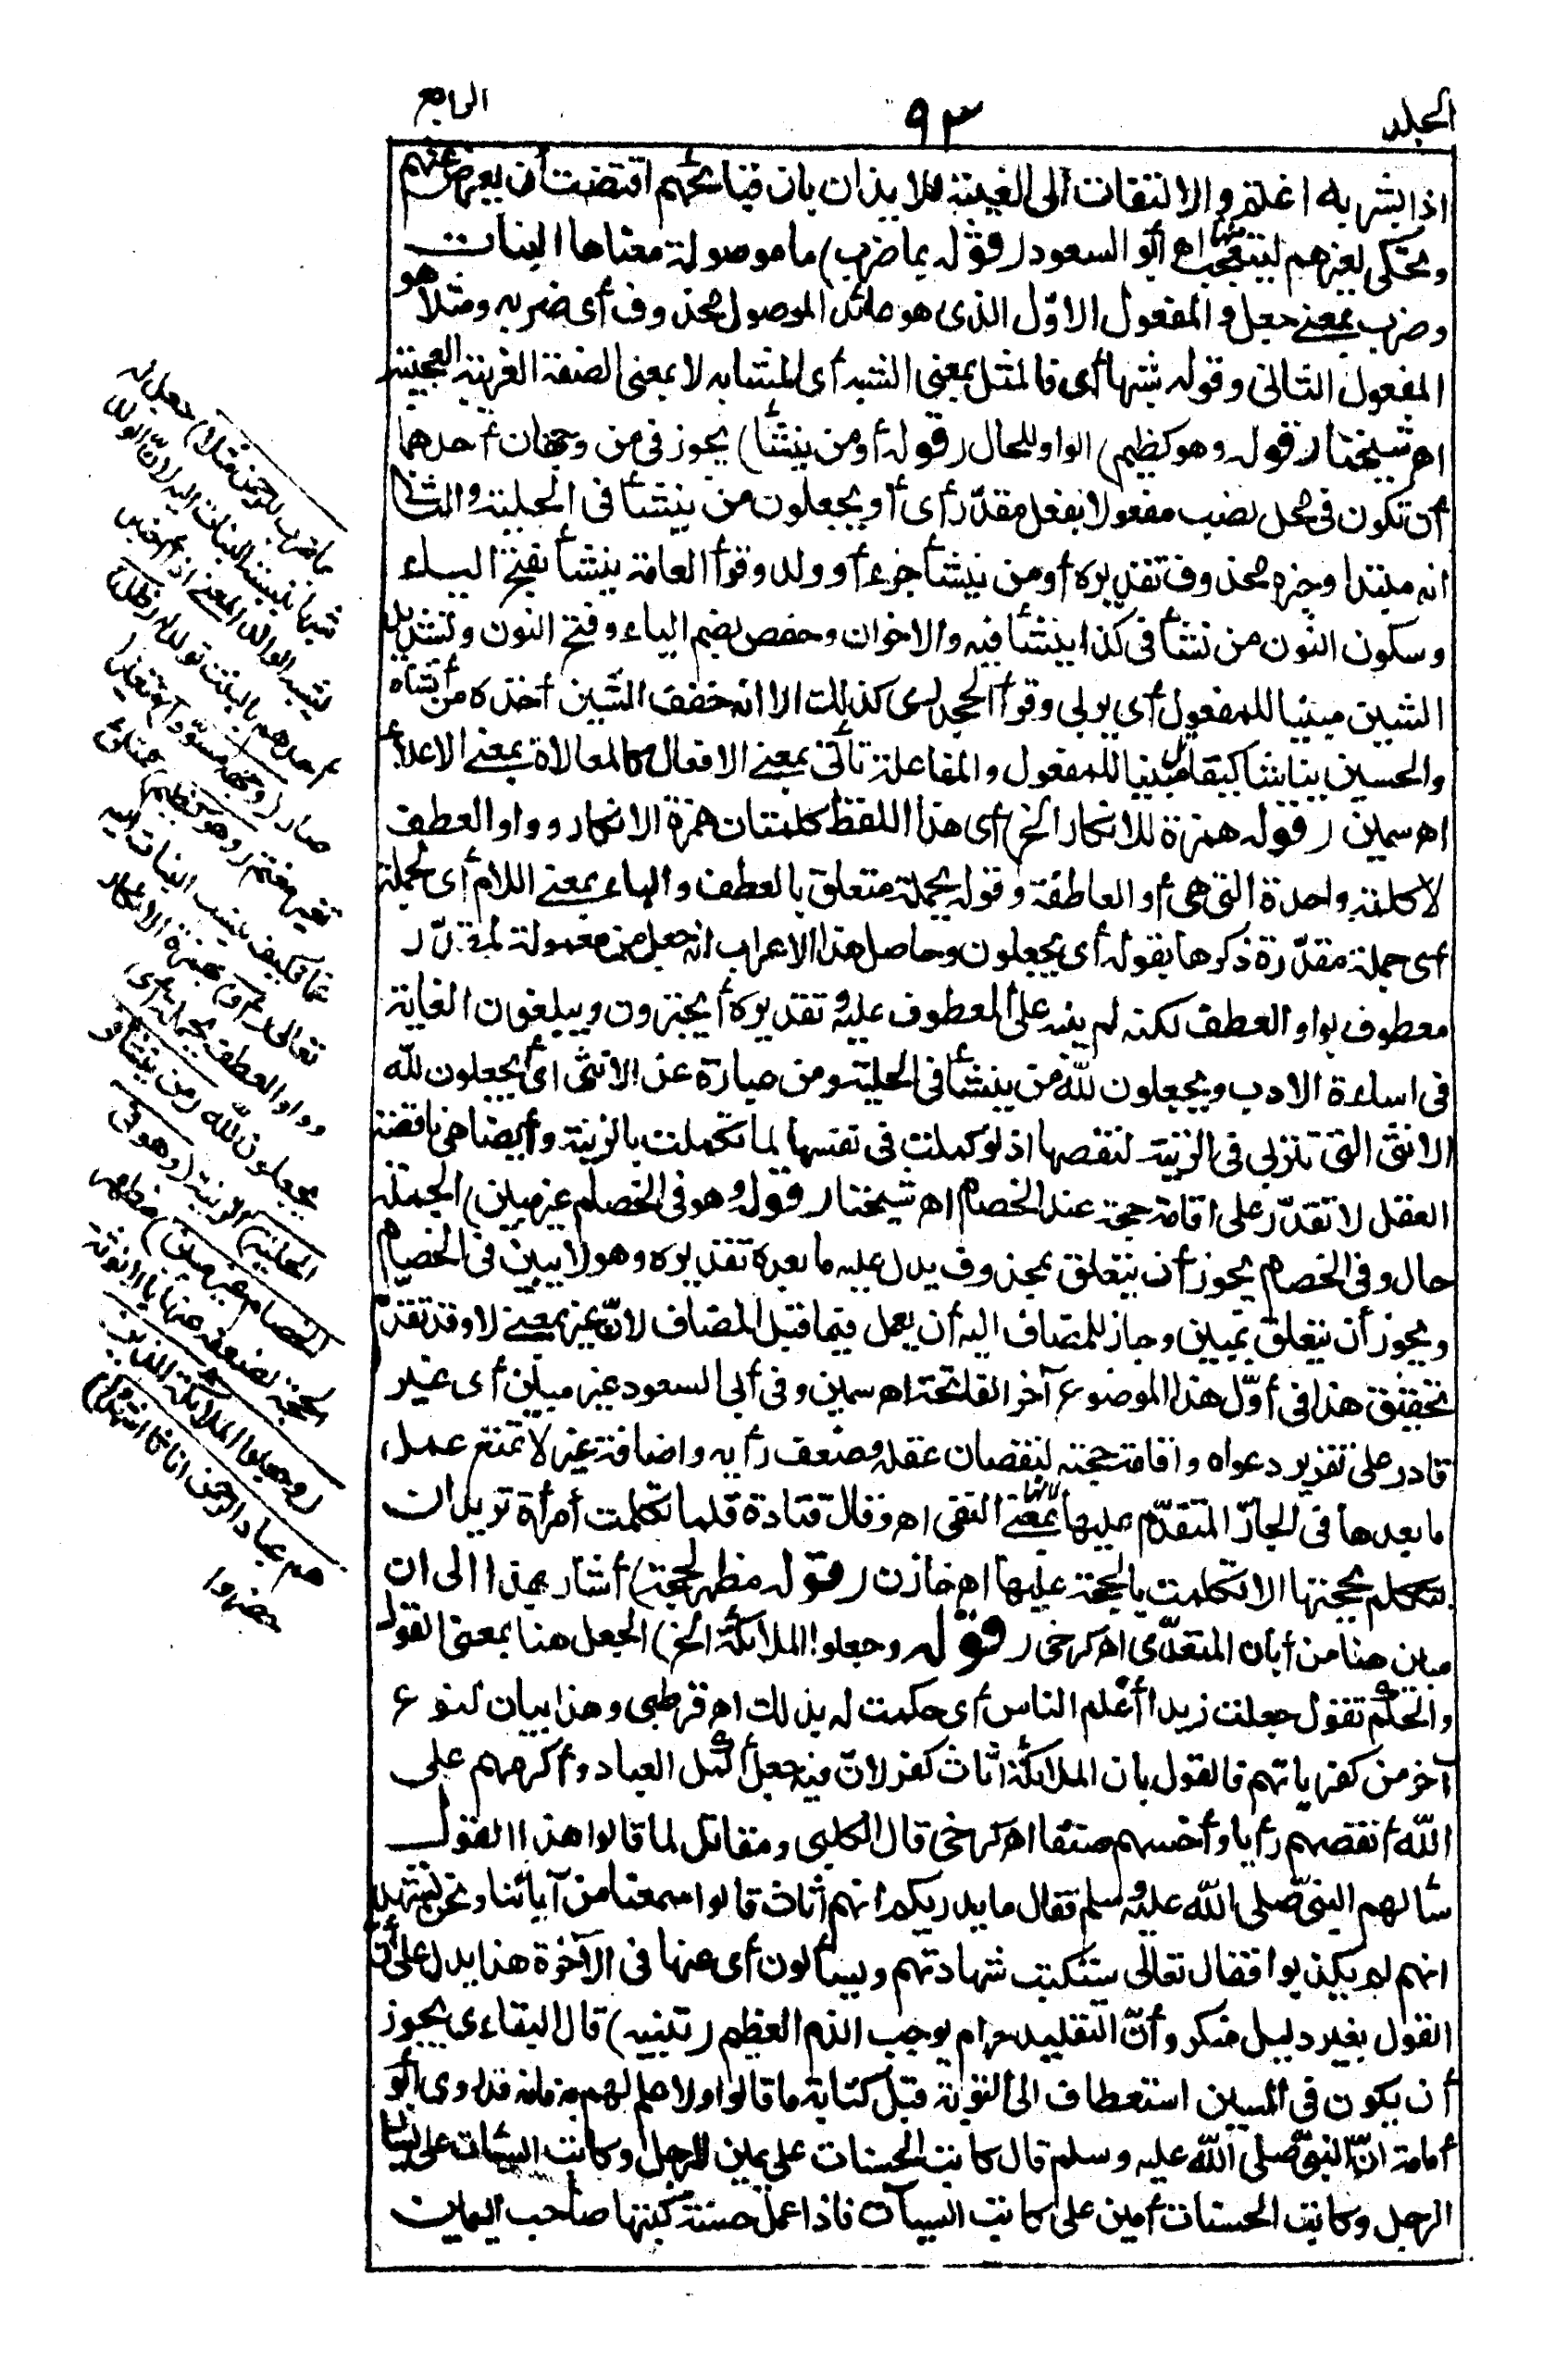 المجلد
٩٣
الرابع
اذا بشر به اغتم والالتفات الى الغيبة للايذان بان قبائحهم اقتضت أن يعرض عنهم
وتحكى لغيرهم ليتعجب منها اه أبو السعود (قوله بما ضرب) ما موصولة معناها البنات
وضرب بمعنى جعل والمفعول الاوّل الذى هو عائد الموصول محذوف أى ضربه ومثلا هو
المفعول الثانى وقوله شبها أى فالمثل بمعنى الشبه أى المشابه لا بمعنى الصفة الغريبة العجيبة
اه شيخنا (قوله وهو كظيم) الواو للحال (قوله أو من ينشأ) يجوز فى من وجهان أحدهما
أن تكون فى محل نصب مفعولا بفعل مقدّر أى أو يجعلون من ينشأ فى الحلية والثانى
انه مبتدا وخبره محذوف تقديره أو من ينشأ جزء أو ولد وقرأ العامة ينشأ بفتح الياء
وسكون النون من نشأ فى كذا ينشأ فيه والاخوان وحفص بضم الياء وفتح النون وتشديد
الشين مبنيا للمفعول أى يربى وقرأ الجحدرى كذلك الا انه خفف الشين أخذه من أنشأه
والحسين يناشأ كيقاتل مبنيا للمفعول والمفاعلة تأتى بمعنى الافعال كالمعالاة بمعنى الاعلاء
اه سمين (قوله همزة للانكار الخ) أى هذا اللفظ كلمتان همزة الانكار وواو العطف
لا كلمة واحدة التى هى أو العاطفة وقوله بجملة متعلق بالعطف والباء بمعنى اللام أى لجملة
أى جملة مقدّرة ذكرها بقوله أى يجعلون وحاصل هذا الاعراب انه جعل من معمولة لمقدّر
معطوف بواو العطف لكنه لم ينبه على المعطوف عليه وتقديره أيجترون ويبلغون الغاية
فى اساءة الادب ويجعلون لله من ينشأ فى الحلية ومن عبارة عن الانثى أى أيجعلون لله
الانثى التى تتربى فى الزينة لنقصها اذ لو كملت فى نفسها لما تكملت بالزينة وأيضا هى ناقصة
العقل لا تقدر على اقامة حجة عند الخصام اه شيخنا (قوله وهو فى الخصام غير مبين) الجملة
حال وفى الخصام يجوز أن يتعلق بمحذوف يدل عليه ما بعده تقديره وهو لا يبين فى الخصام
ويجوز أن يتعلق بمبين وجاز للمضاف اليه أن يعمل فيما قبل المضاف لانّ غير بمعنى لا وقد تقدّم
تحقيق هذا فى أوّل هذا الموضوع آخر الفاتحة اه سمين وفى أبى السعود غير مبين أى غير
قادر على تقرير دعواه واقامة حجته لنقصان عقله وضعف رأيه واضافة غير لا تمنع عمل
ما بعدها فى الجارّ المتقدّم عليها لانها بمعنى النفى اه وقال قتادة قلما تكلمت امرأة تريد ان
تتكلم بحجتها الا تكلمت بالحجة عليها اه خازن (قوله مظهر الحجة) أشار بهذا الى ان
مبين هنا من أبان المتعدّى اه كرخى (قوله وجعلوا الملائكة الخ) الجعل هنا بمعنى القول
والحكم تقول جعلت زيدا أعلم الناس أى حكمت له بذلك اه قرطبى وهذا بيان لنوع
آخر من كفرياتهم فالقول بان الملائكة اناث كفر لانّ فيه جعل أكمل العباد وأكرمهم على
الله أنقصهم رأيا وأخسهم صنفا اه كرخى قال الكلبى ومقاتل لما قالوا هذا القول
سألهم النبى صلى الله عليه وسلم فقال ما يدريكم انهم اناث قالوا سمعنا من آبائنا ونحن نشهد
انهم لم يكذبوا فقال تعالى ستكتب شهادتهم ويسألون أى عنها فى الآخرة هذا يدل على أنّ
القول بغير دليل منكر وأنّ التقليد حرام يوجب الذم العظيم (تنبيه) قال البقاعى يجوز
أن يكون فى السين استعطاف الى التوبة قبل كتابة ما قالوا ولا علم لهم به فانه قد روى أبو
أمامة انّ النبىّ صلى الله عليه وسلم قال كاتب الحسنات على يمين الرجل وكاتب السيئات على يسار
الرجل وكاتب الحسنات أمين على كاتب السيآت فاذا عمل حسنة كتبها صاحب اليمين
ما ضرب للرحمن مثلا) جعل له
شبها بنسبة البنات اليه لانّ الولد
يشبه الوالد المعنى اذا أخبر
أحدهم بالبنت تولد له (ظل)
صار (وجهه مسودّا) متغيرا
تغير مغتم (وهو كظيم) ممتلئ
غما فكيف ينسب البنات اليه
تعالى (أو) همزة الانكار
وواو العطف بجملة أى
يجعلون لله (من ينشأ فى
الحلية) الزينة (وهو فى
الخصام غير مبين) مظهر
الحجة لضعفه عنها بالانوثة
(وجعلوا الملائكة الذين
هم عباد الرحمن اناثا أشهدوا)
حضروا